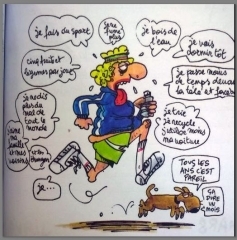 je fais du sport
je ne
fume
plus
je bois de
l'eau
je vais
dormir tôt
cinq fruits et
légumes par jour
je passe moins
de temps devant
la télé et facebook
je ne dis
plus du
mal de
tout le
monde
j'aime
ma
famille
et mes
voisins
je trie
je recycle
j'utilise moins
ma voiture
je...
TOUS LES
ANS C'EST
PAREIL
ÇA
DURE UN
MOIS